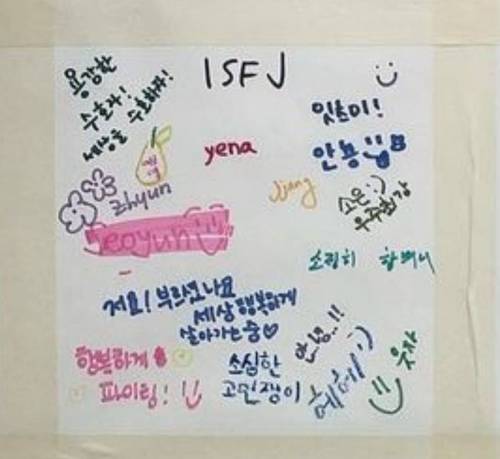 ISFJ
용감한
수호자!
세상을 수호하자!
잇츠미!
안뇽
yena
예지
jjang
소은:)
우주최강
zhyun
seoyun
소정히
저요! 부르셨나요
세상 행복하게
살아가는 중♡
안녕..!!
행복하게
파이팅!
소심한
고민쟁이
헤헤:)
웃자